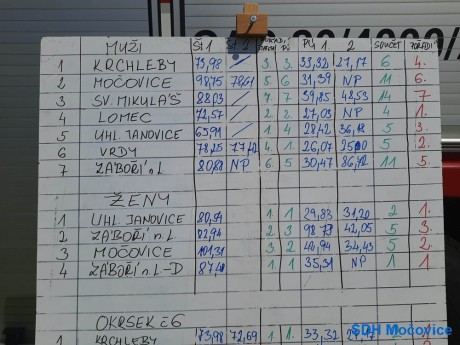 MUŽI ŠT 1 ŠT 2 PÚ 1 2 SOUČET POŘADÍ
1 KRCHLEBY 73,98 / 3. 3. 33,32 27,17 6 4.
2 MOČOVICE 98,75 78,61 5 6 31,39 NP 11 6.
3 SV. MIKULÁŠ 88,03 / 7. 7. 39,85 48,53 14 7
4 LOMEC 72,57 / 2. 2. 27,03 NP 4 1.
5 UHL. JANOVICE 65,91 / 1 4 28,42 36,18 5 3.
6 VRDY 78,25 77,42 4. 1. 26,07 5 2.
7 ZÁBOŘÍ n.L 80,88 NP 6 5 30,47 86,42 11 5.
ŽENY
1 UHL. JANOVICE 80,51 1 1. 29,83 31,20 2 1.
2 ZÁBOŘÍ n.L 2 3 98,73 42,05 5 3.
3 MOČOVICE 101,31 3 2 40,94 34,43 5 2.
4 ZÁBOŘÍ n.L-D 87,41 1 1 35,31 NP 1 1
OKRSEK č6
1 KRCHLEBY 73,98 72,69 1 1. 33,32
SDH Mocovice